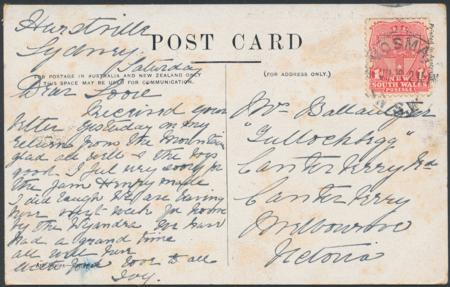 Hurstville
Sydney
Saturday
POST CARD
FOR POSTAGE IN AUSTRALIA AND NEW ZEALAND ONLY
THIS SPACE MAY BE USED FOR COMMUNICATION.
(FOR ADDRESS ONLY.)
Dear
I received your
letter yesterday on my
return from the Mountains
glad all well & the boys
good. I feel very sorry
the Jam Henry made
I did laugh We are leaving
here next week for home
by the Wyandra
had a grand time
all well
with fond love to all
Ivy.
Mrs Ballantyne
Canterbury Rd
Canterbury
Melbourne
Victoria
MOSMAN
N.S.W
NEW
SOUTH WALES
POSTAGE